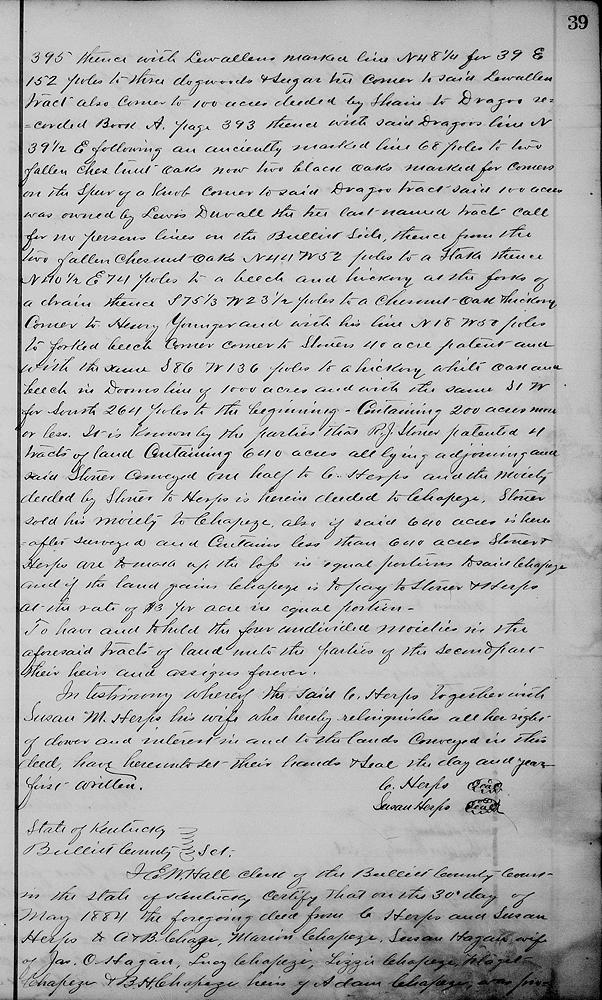 39
395 thence with Lewallens marked line N 48 1/4 for 39 E
152 poles to three dogwoods & Sugar tree Corner to said Lewallen
tract also Corner to 100 acres deeded by Shain to Dragoo re=
=corded Book A. page 393 thence with said Dragoos line N
39 1/2 E following an anciently marked line 68 poles to two
fallen Chestnut Oaks now two black Oaks marked for Corners
on the Spur of a Knob Corner to said Dragoo tract said 100 acres
was owned by Lewis Duvall the two last named tracts call
for no persons lines on the Bullitt Side, thence from the
two fallen Chesnut Oaks N 44 W 52 poles to a Stake thence
N 40 1/2 E 74 poles to a beech and hickory at the forks of
a drain thence S 75 1/3 W 23 1/2 poles to a Chesnut-Oak & hickory
Corner to Henry Younger and with his line N 18 W 50 poles
to forked beech Corner corner to Stoners 40 acre patent and
with the same S 86 W 136 poles to a hickory white oak and
beech in Dooms line of 1000 acres and with the same S 1 W
for South 264 poles to the beginning - Containing 200 acres more
or less. It is Known by the parties that R.J. Stoner patented 4
tracts of land Containing 640 acres all lying adjoining and
said Stoner Conveyed one half to C. Herps and the moiety
deeded by Stoner to Herps is herein deeded to Chapeze, Stoner
sold his moiety to Chapeze, also if said 640 acres is here
=after surveyed and Contains less than 640 acres Stoner &
Herps are to make up the loss in equal portions to said Chapeze
and if the land gains Chapeze is to pay to Stoner & Herps
at the rate of $3 per acre in equal portion -
To have and to hold the four undivided moieties in the
aforesaid tracts of land unto the parties of the second part
their heirs and assigns forever.
In testimony whereof the said C. Herps together with
Susan M. Herps his wife who hereby relinquishes all her right
of dower and interest in and to the lands Conveyed in this
deed, have hereunto set their hands & Seal the day and year
first written.
C. Herps Seal
Susan Herps Seal
State of Kentucky
Bullitt County Sct.
I E W Hall clerk of the Bullitt County Court
in the State of Kentucky Certify that on the 30 day of
May 1884 the foregoing deed from C Herps and Susan
Herps to A & B. Chapeze, Marion Chapeze, Susan Hagan wife
of Jas. O. Hagan, Lucy Chapeze, Lizzie Chapeze,
Chapeze & B.H. Chapeze heirs of Adam Chapeze, was pro=